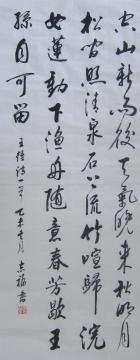 空山新雨後天氣晚來秋明月
松間照清泉石上流竹喧歸浣
女蓮動下漁舟隨意春芳歇王
孫自可留
王維詩一首 乙未 月 書